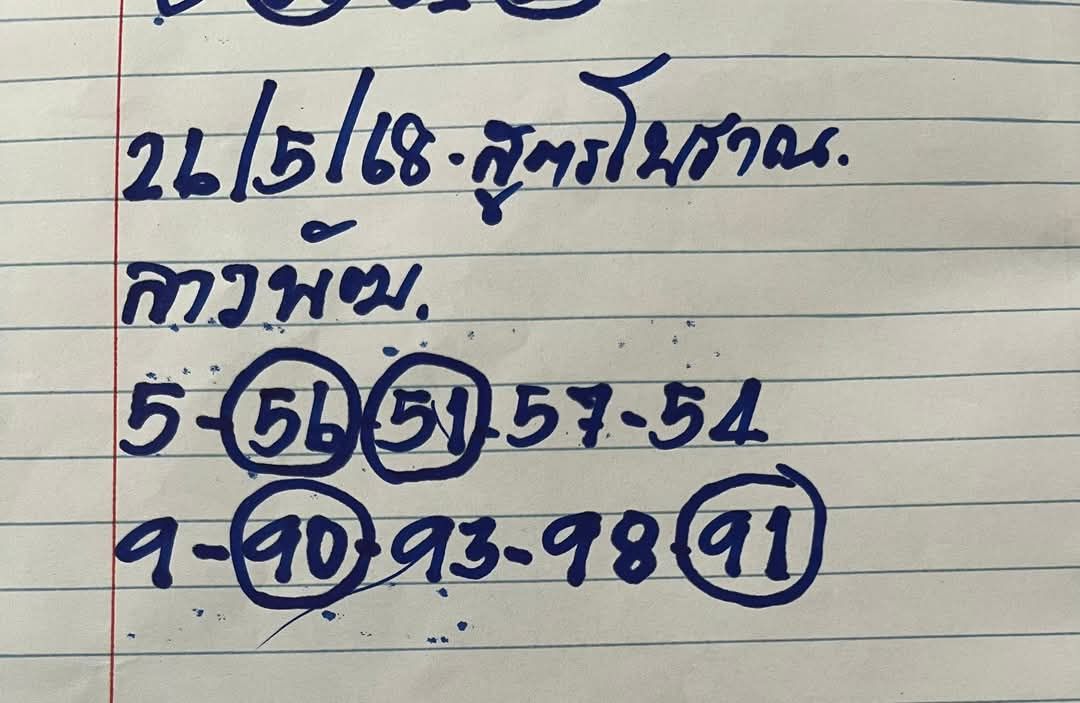 26/5/68.สูตรโบราณ.
ลาวพัฒ.
5-56 51.57-54
9-90.93-98.91